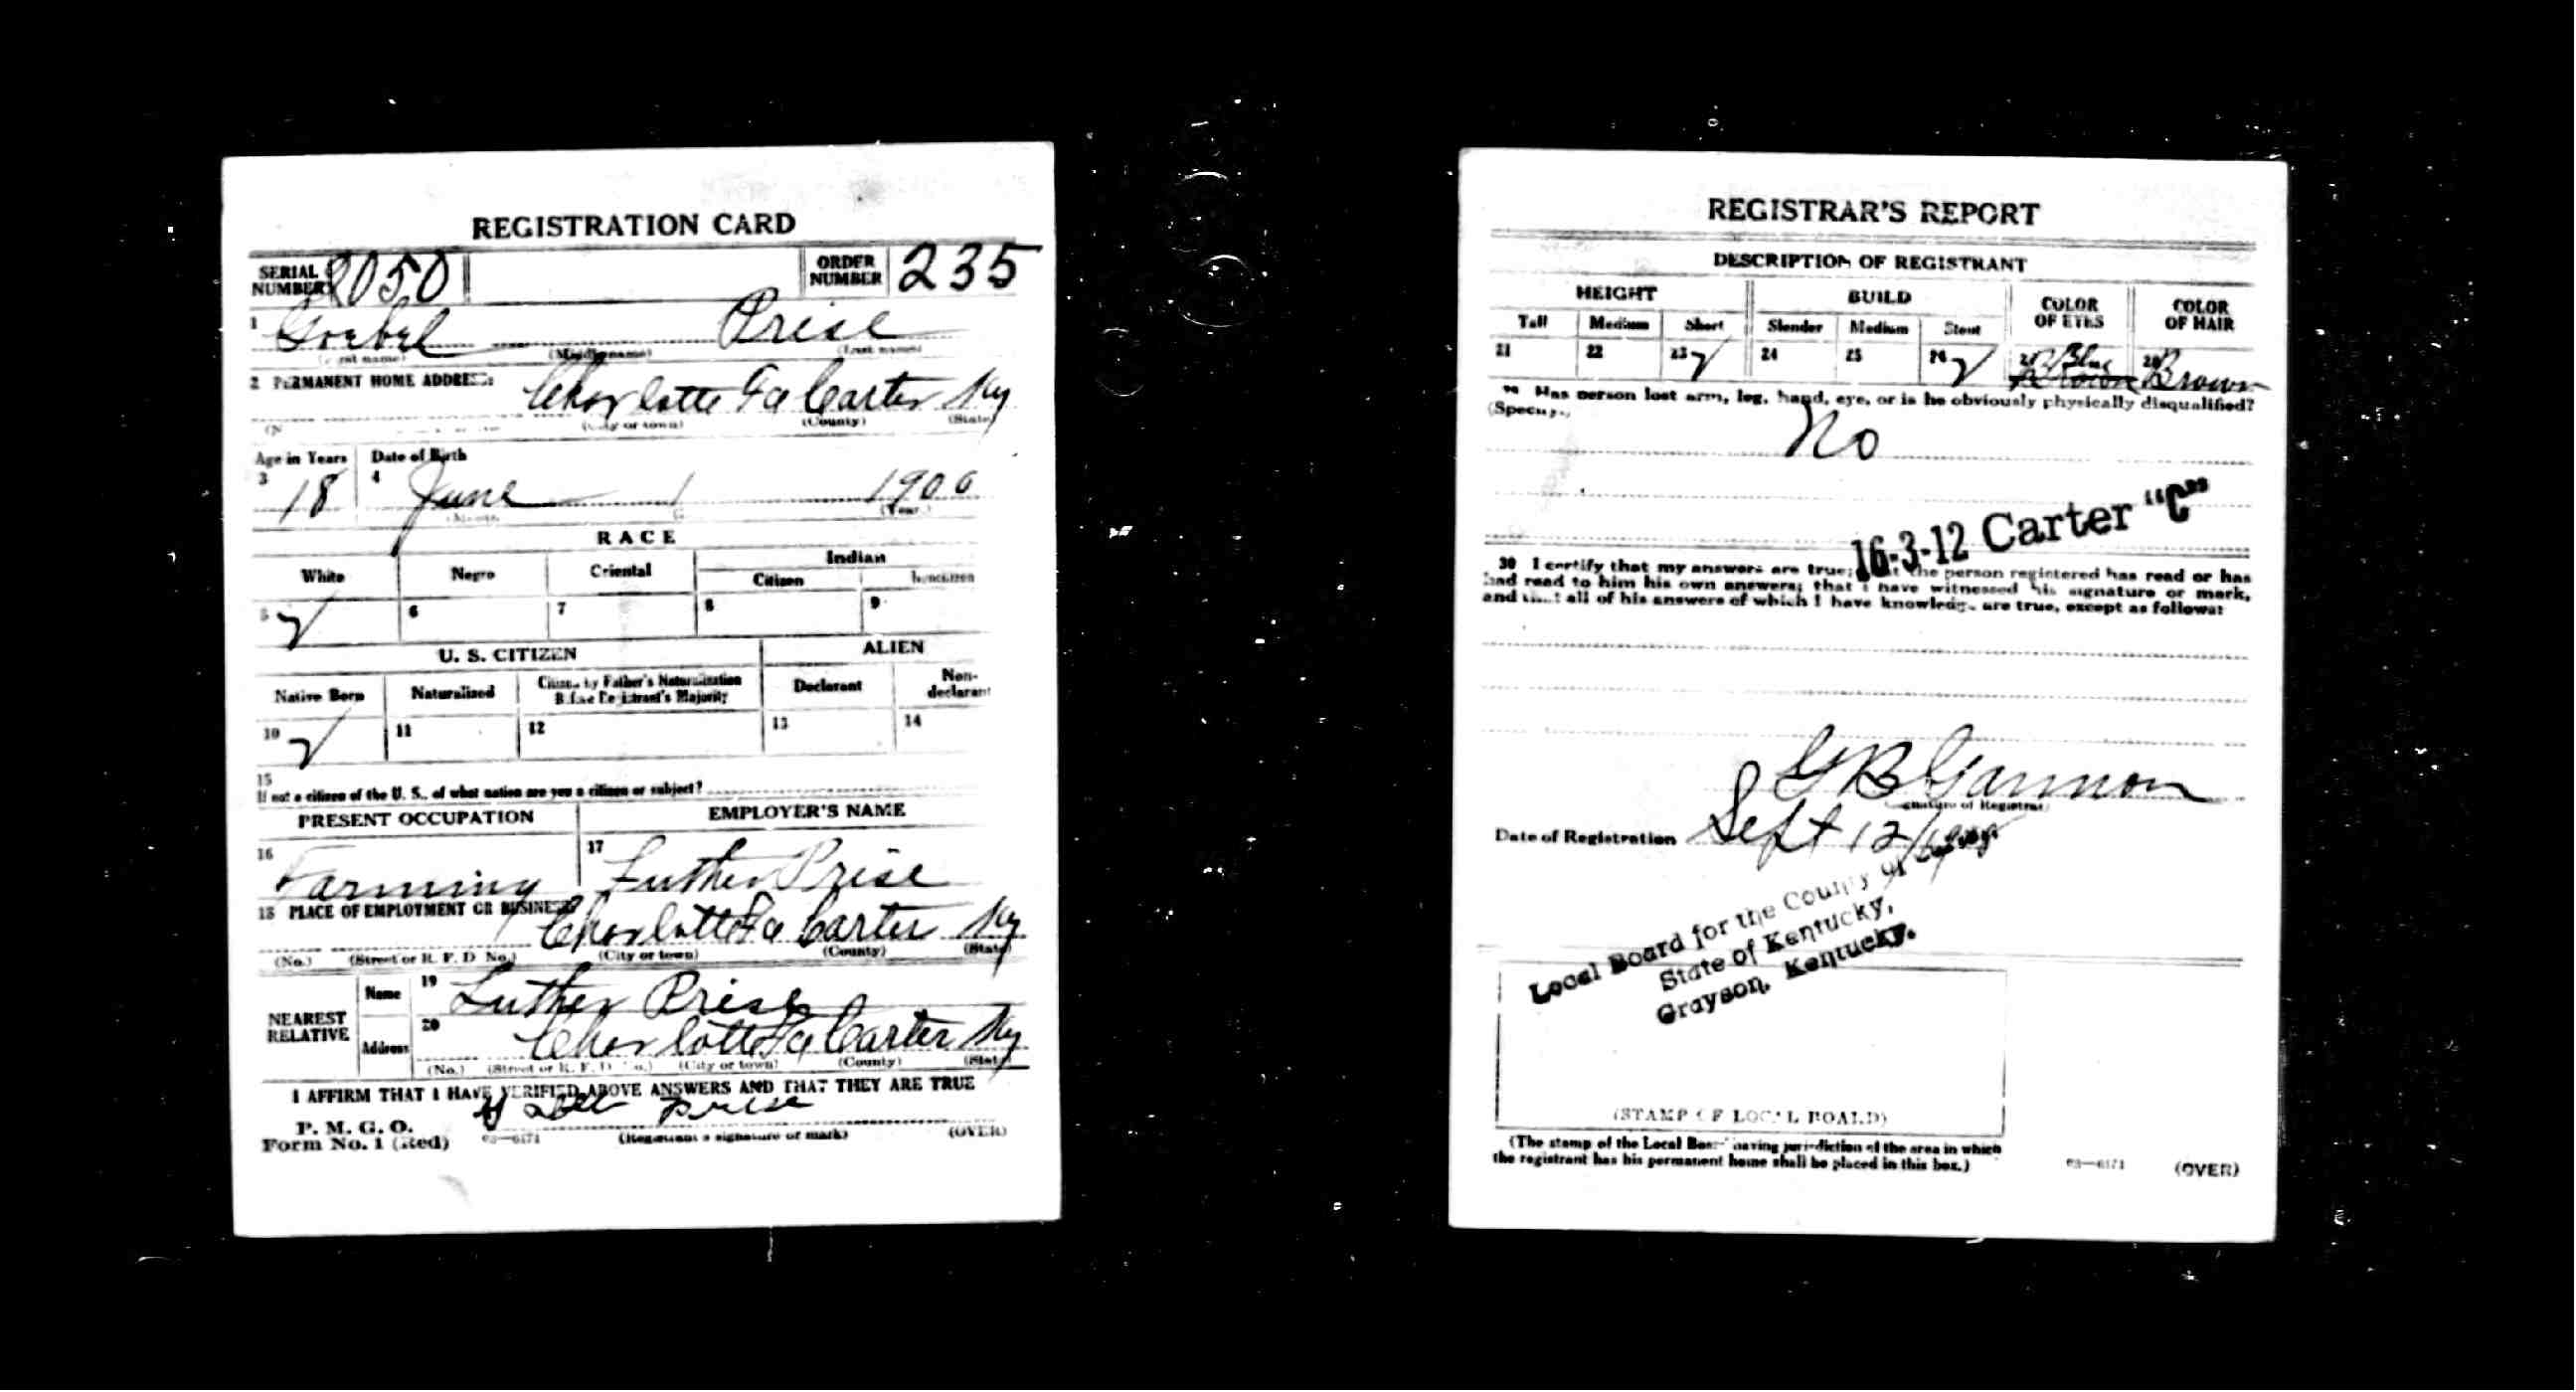 REGISTRATION CARD
SERIAL NUMBER 2050 ORDER NUMBER 235
1 Goebel Prise
(First name) (Middle name) (Last name)
2 PERMANENT HOME ADDRESS: Charlotte Fa Carter Ky
(City or town) (County) (State)
Age in Years Date of Birth
3 18 4 June 1 1900
(Year)
RACE
White Negro Oriental Indian
Citizen Noncitizen
5 ✓ 6 7 8 9
U. S. CITIZEN ALIEN
Native Born Naturalized Citizen by Father's Naturalization Before Registrant's Majority Declarant Non-declarant
10 ✓ 11 12 13 14
15
If not a citizen of the U. S., of what nation are you a citizen or subject?
PRESENT OCCUPATION EMPLOYER'S NAME
16 Farming 17 Luther Prise
18 PLACE OF EMPLOYMENT OR BUSINESS: Charlotte Fa Carter Ky
(No.) (Street or R. F. D. No.) (City or town) (County) (State)
NEAREST RELATIVE Name 19 Luther Prise
Address 20 Charlotte Fa Carter Ky
(No.) (Street or R. F. D. No.) (City or town) (County) (State)
I AFFIRM THAT I HAVE VERIFIED ABOVE ANSWERS AND THAT THEY ARE TRUE
P. M. G. O.
Form No. 1 (Red) 03—6171 Prise (Registrant's signature or mark) (OVER)
REGISTRAR'S REPORT
DESCRIPTION OF REGISTRANT
HEIGHT BUILD COLOR OF EYES COLOR OF HAIR
Tall Medium Short Slender Medium Stout
21 22 23 ✓ 24 25 26 ✓ 27 Blue Brown 28 Brown
29 Has person lost arm, leg, hand, eye, or is he obviously physically disqualified?
(Specify.)
No
16-3-12 Carter "C"
30 I certify that my answers are true; that the person registered has read or has
had read to him his own answers; that I have witnessed his signature or mark,
and that all of his answers of which I have knowledge are true, except as follows:
G B Gannon
(Signature of Registrar)
Date of Registration Sept 12/1918
Local Board for the County of Carter
State of Kentucky,
Grayson, Kentucky.
(STAMP OF LOCAL BOARD)
(The stamp of the Local Board having jurisdiction of the area in which
the registrant has his permanent home shall be placed in this box.)
03—6171 (OVER)